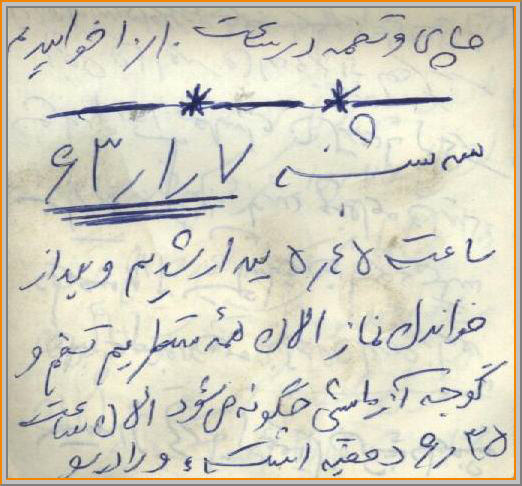 چای و تخمه در ساعت ۱۰٫۱ خوابیدیم
سه شنبه ۶۳٫۱٫۷
ساعت ۵٫۴۵ بیدار شدیم و بعد از
خواندن نماز الان همه منتظریم تخم و
گوجه آزمایشی چگونه می شود الان ساعت
۶٫۳۵ دقیقه است و رادیو